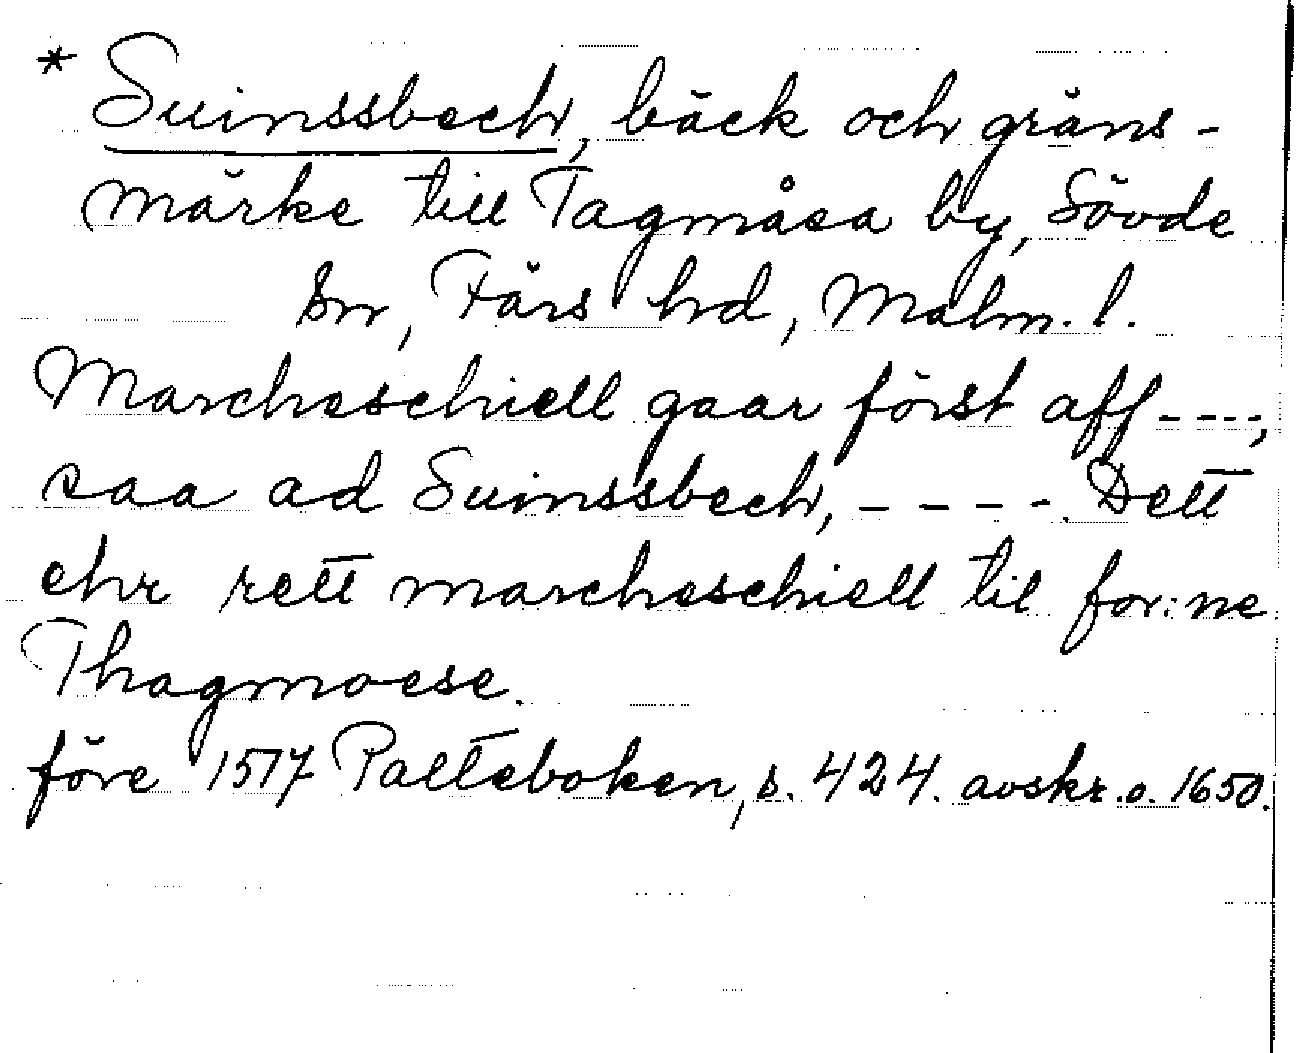 * Suinssbech, bäck och gräns-
märke till Tagmåsa by, Sövde
sn, Färs hd, Malm. l.
Marcheschiell gaar först aff ----,
saa ad Suinssbech, ----. Dett
ehr rett marcheschiell til for:ne
Thagmoese.
före 1517 Palteboken, s. 424. avskr. o. 1650.